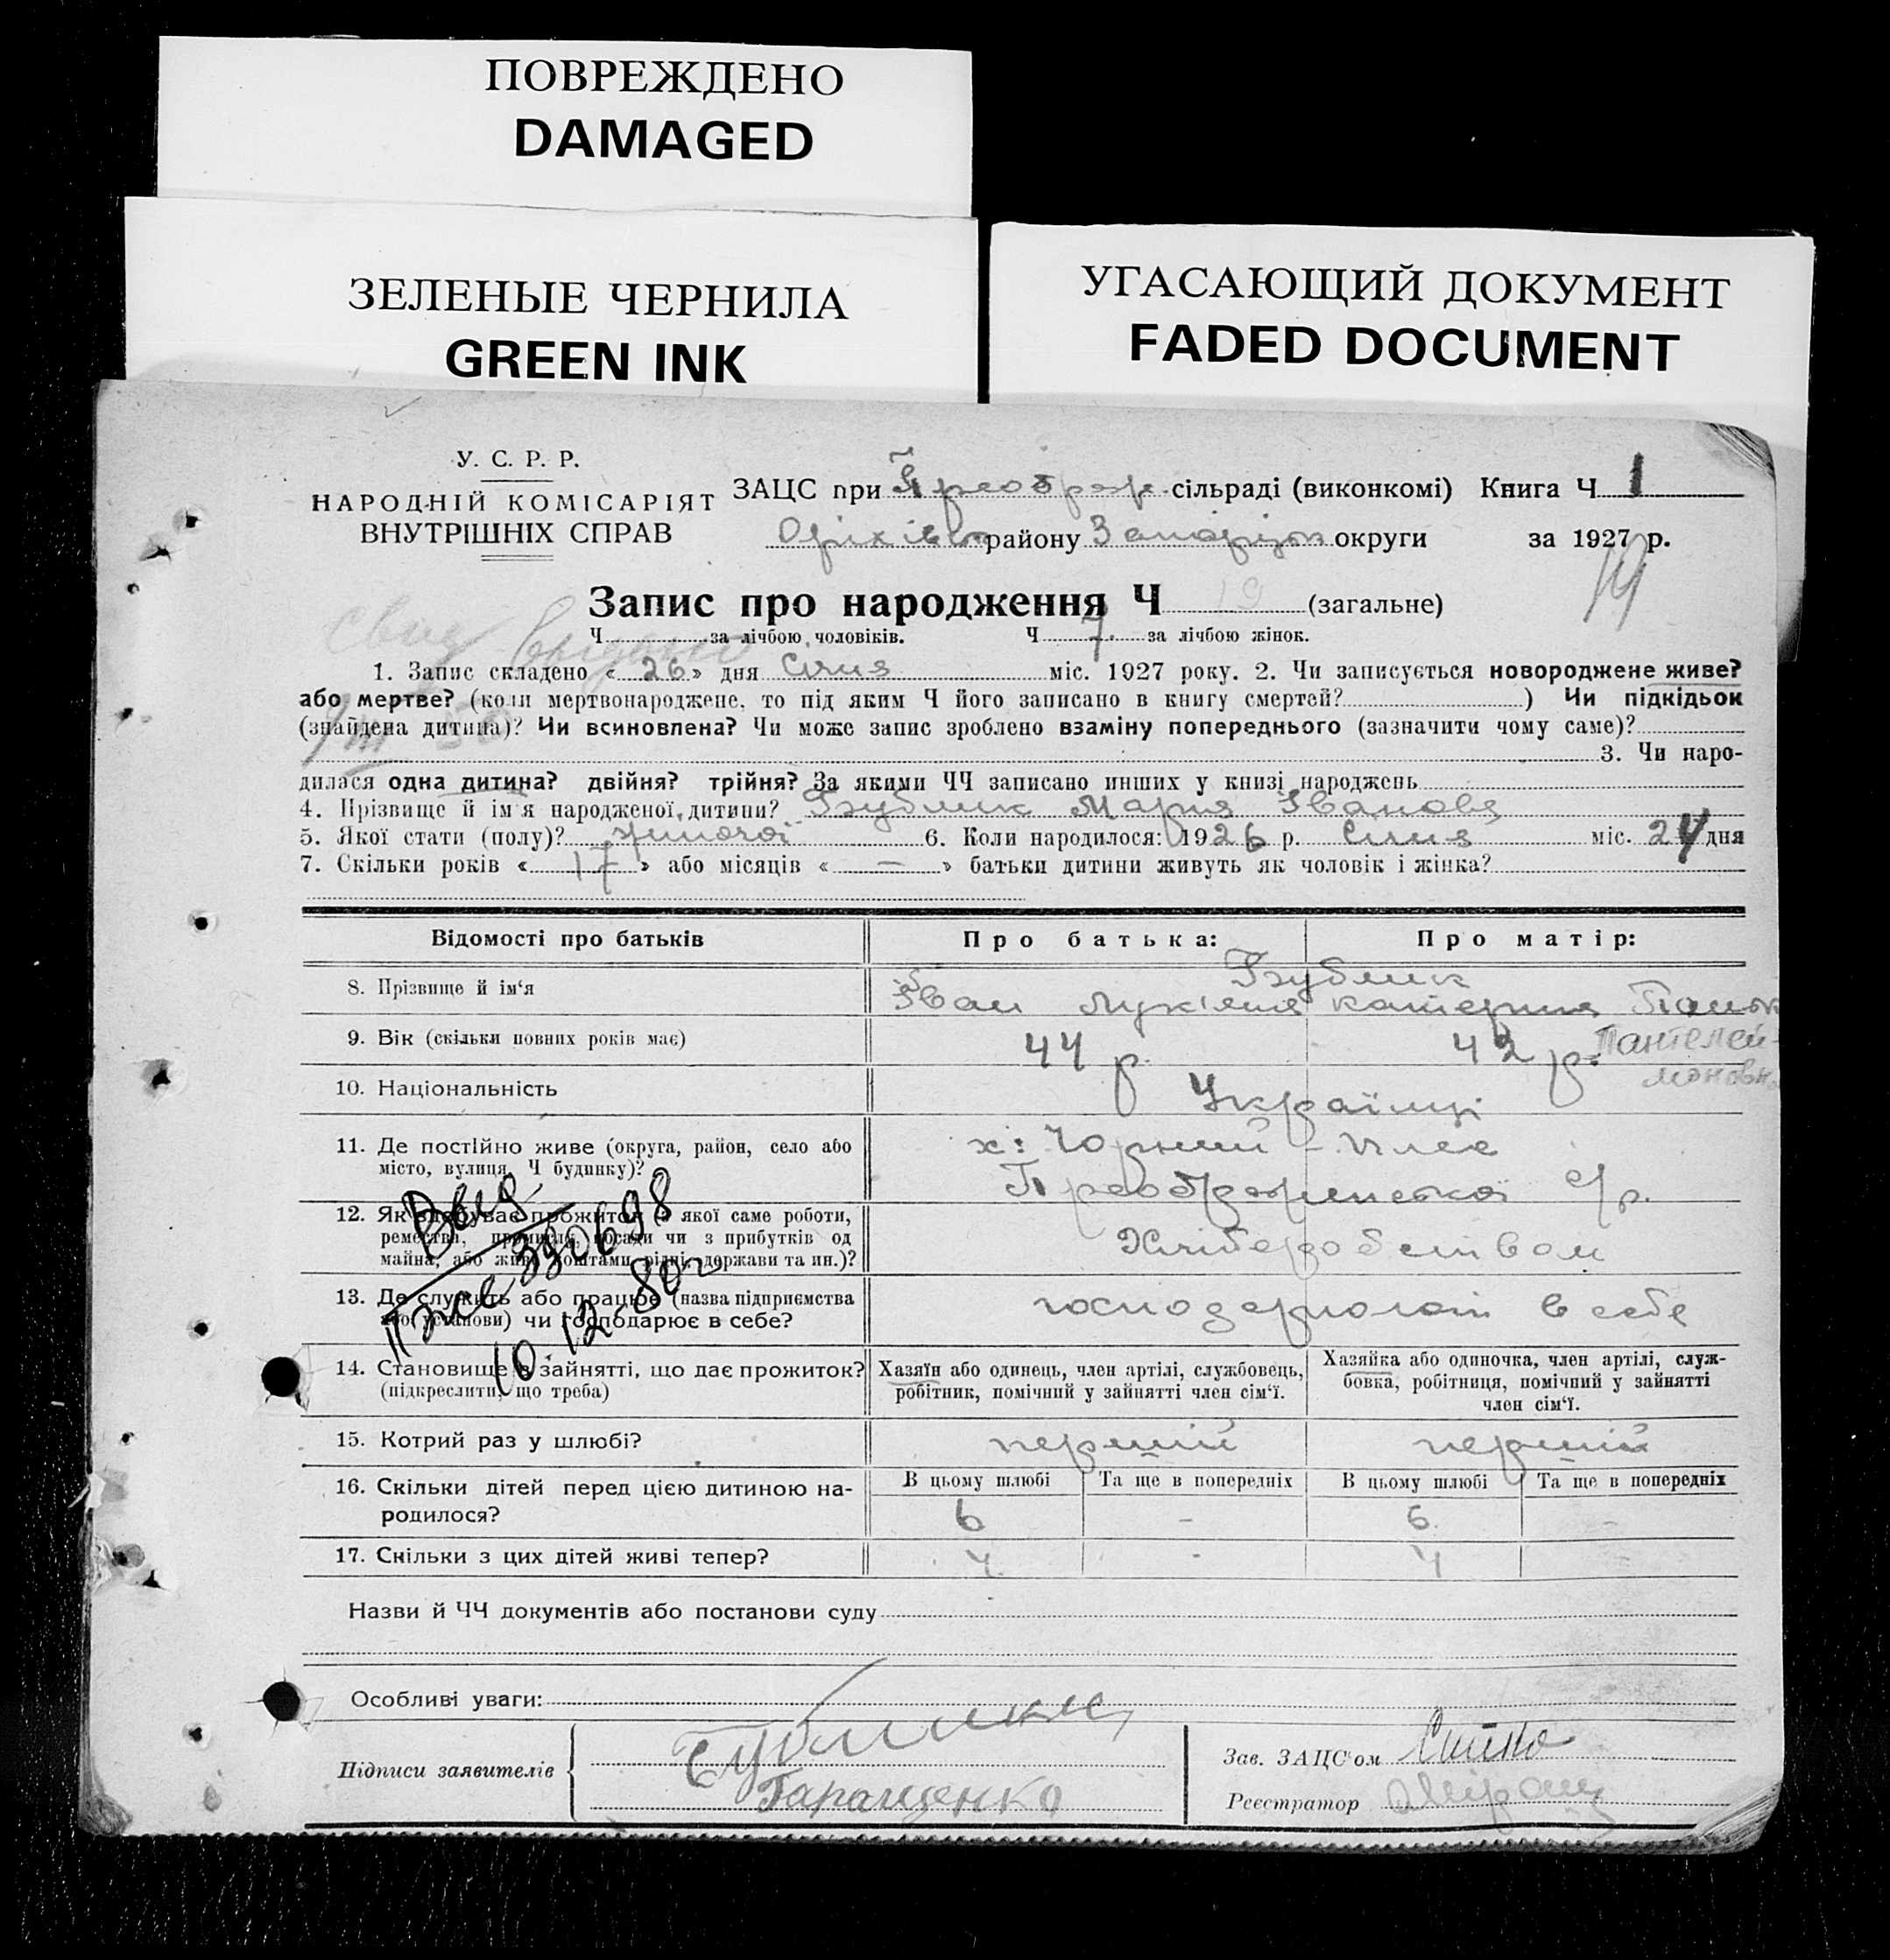 ПОВРЕЖДЕНО
DAMAGED
ЗЕЛЕНЫЕ ЧЕРНИЛА
GREEN INK
УГАСАЮЩИЙ ДОКУМЕНТ
FADED DOCUMENT
У. С. Р. Р.
НАРОДНІЙ КОМІСАРІЯТ
ВНУТРІШНІХ СПРАВ
ЗАЦС при Преображ. сільраді (виконкомі) Книга Ч 1
Оріхівськ району Запоріз округи за 1927 р.
19
Запис про народження Ч 19 (загальне)
Ч за лічбою чоловіків. Ч 7. за лічбою жінок.
1. Запис складено « 26 » дня Січня міс. 1927 року. 2. Чи записується новороджене живе?
або мертве? (коли мертвонароджене, то під яким Ч його записано в книгу смертей? ) Чи підкідьок
(знайдена дитина)? Чи всиновлена? Чи може запис зроблено взаміну попереднього (зазначити чому саме)?
3. Чи наро-
дилася одна дитина? двійня? трійня? За якими ЧЧ записано инших у книзі народжень
4. Прізвище й ім'я народженої дитини? Бублик Мария Іванова
5. Якої стати (полу)? жіночої 6. Коли народилося: 1926 р. Січня міс. 24 дня
7. Скільки років « 17 » або місяців « — » батьки дитини живуть як чоловік і жінка?
Відомості про батьків Про батька: Про матір:
Бублик
8. Прізвище й ім'я Іван Лук'янів Катерина
9. Вік (скільки повних років має) 44 р. 42 р. Пантелей-
моновн
10. Національність Українці
11. Де постійно живе (округа, район, село або х: Чорний
місто, вулиця, Ч будинку)? Преображенської с/р.
Выд
330698
10.12.80г
12. Як здобуває прожиток (з якої саме роботи,
ремества, промислу, посади чи з прибутків од Хліборобством
майна, або живе коштами рідні, держави та ин.)?
13. Де служить або працює (назва підприємства господарюють в себе
або установи) чи господарює в себе?
14. Становище в зайнятті, що дає прожиток? Хазяїн або одинець, член артілі, службовець, Хазяйка або одиночка, член артілі, служ-
(підкреслити, що треба) робітник, помічний у зайнятті член сім'ї. бовка, робітниця, помічний у зайнятті
член сім'ї.
15. Котрий раз у шлюбі? перший перший
16. Скільки дітей перед цією дитиною на- В цьому шлюбі Та ще в попередніх В цьому шлюбі Та ще в попередніх
родилося? 6 - 6 -
17. Скільки з цих дітей живі тепер? 4 - 4 -
Назви й ЧЧ документів або постанови суду
Особливі уваги:
Підписи заявителів
Гаращенко
Зав. ЗАЦС'ом
Реєстратор